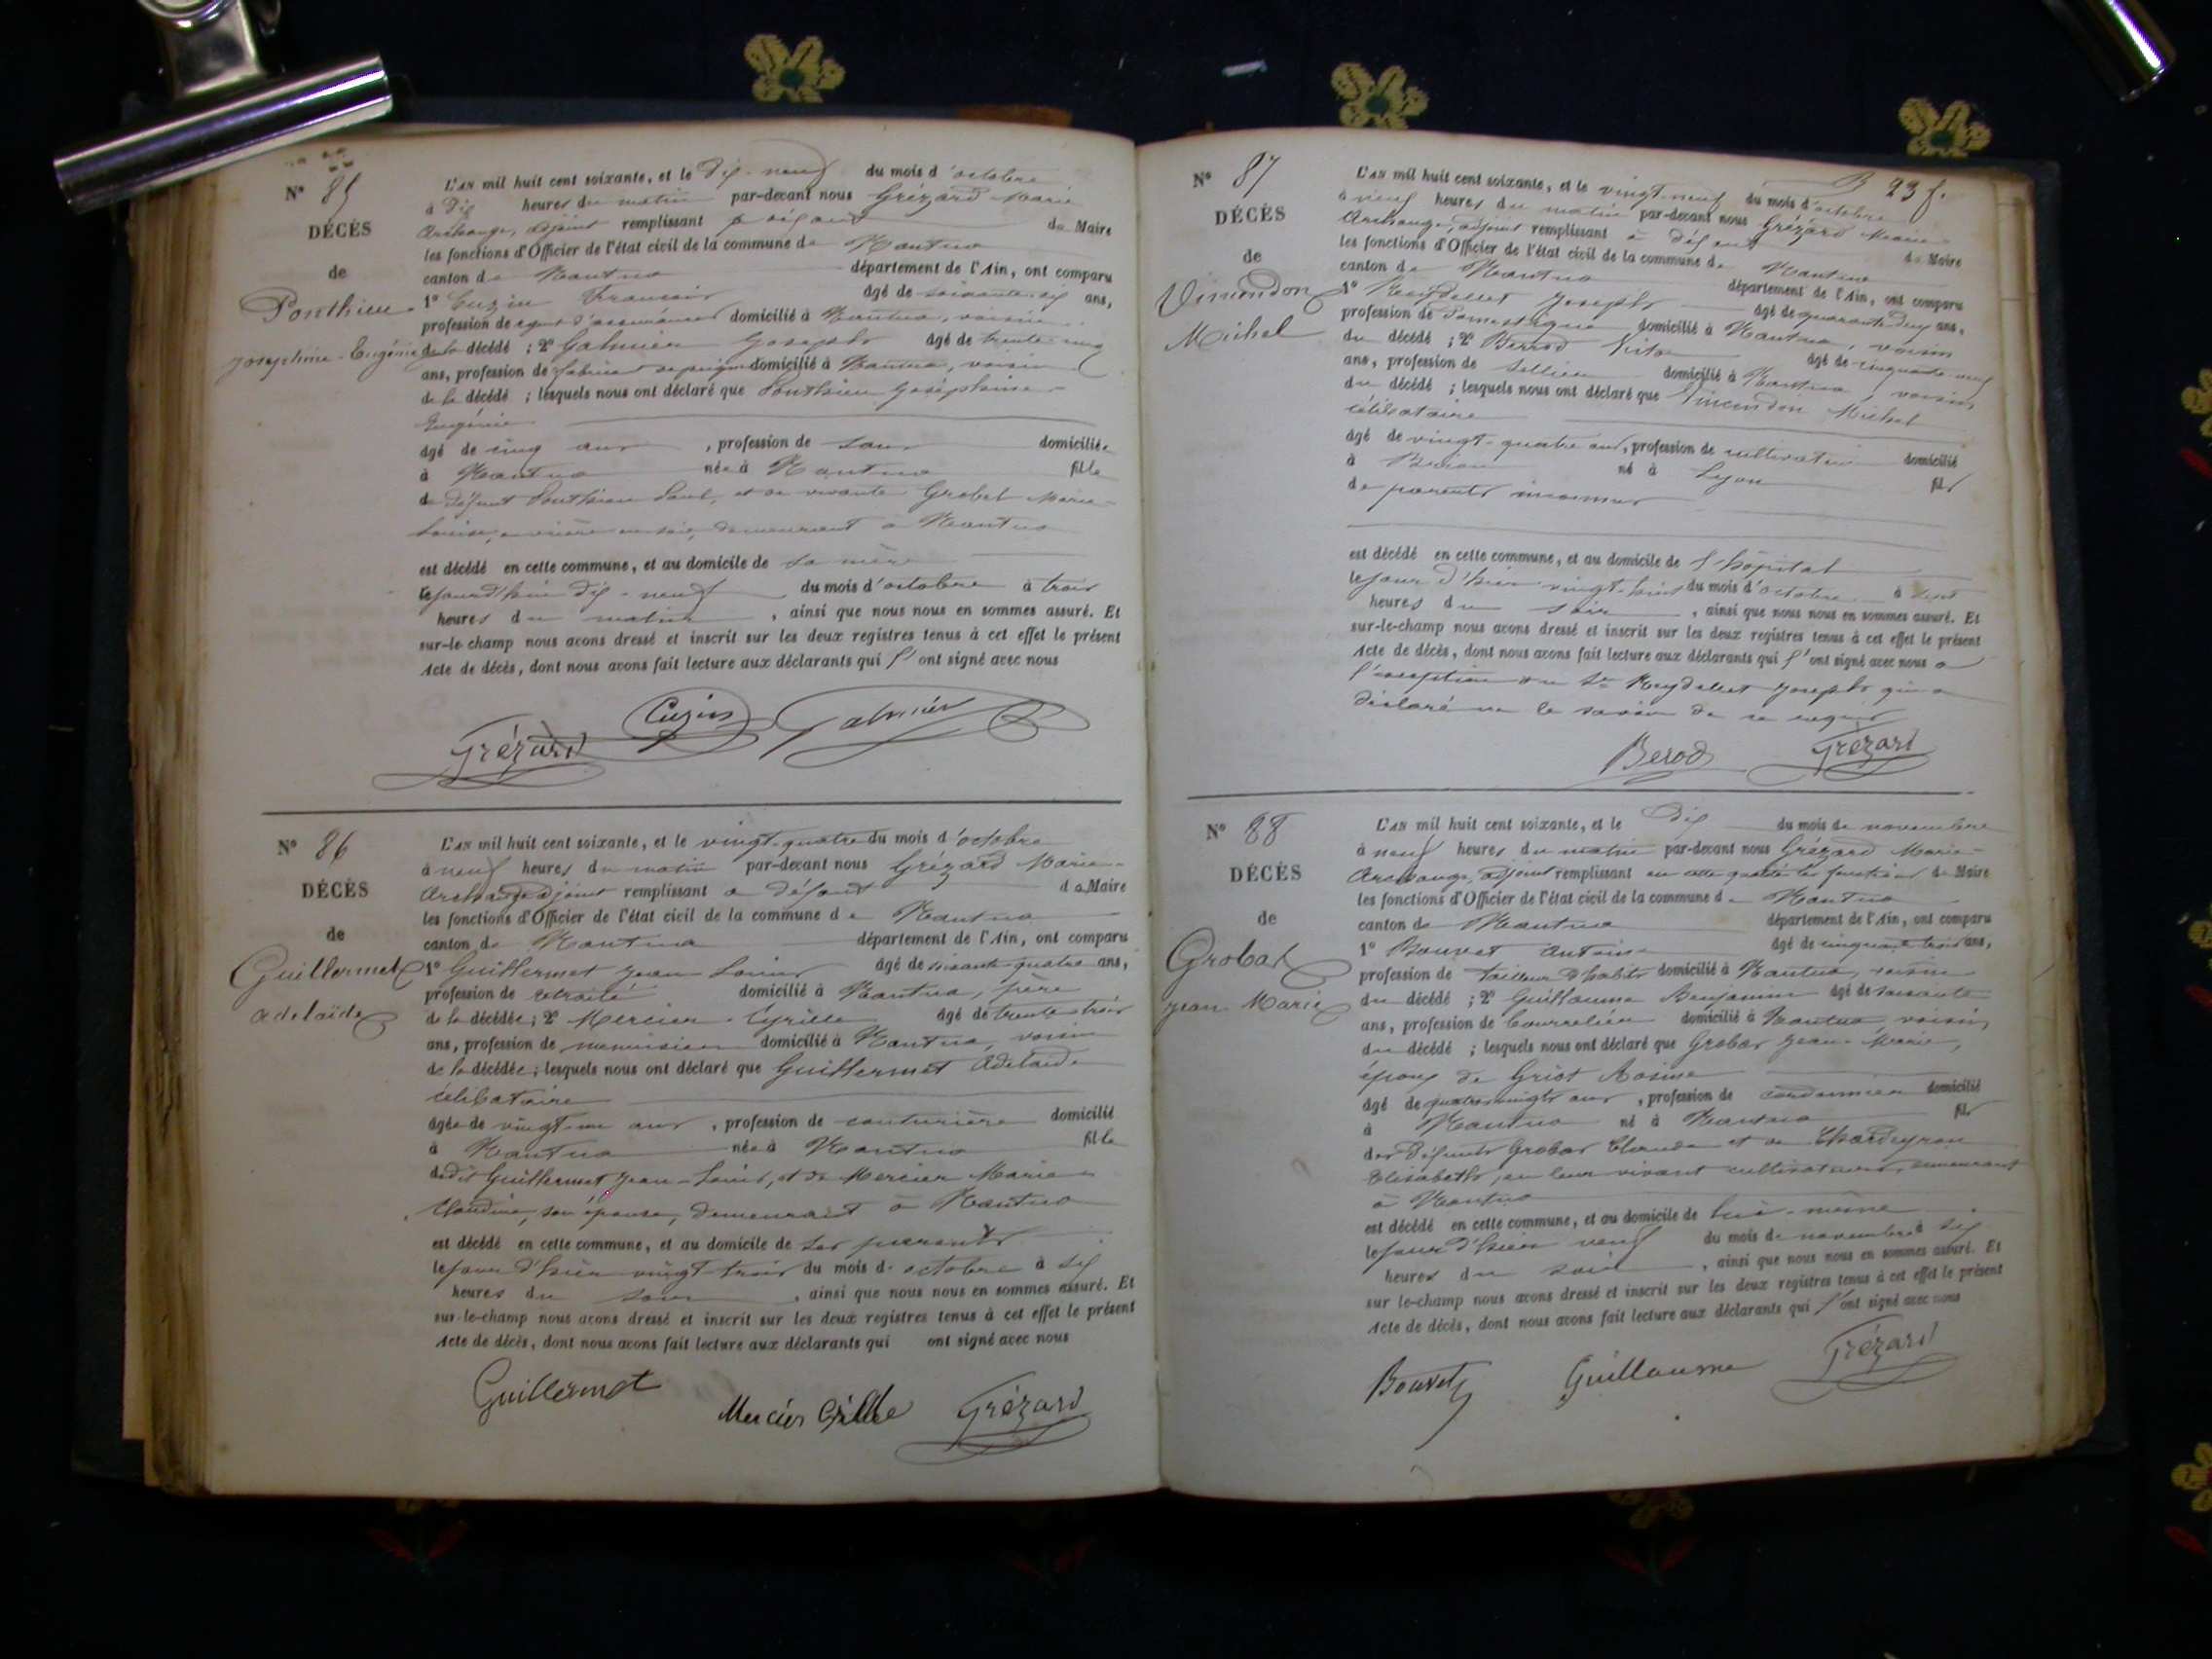 N° 85
DÉCÈS
de
Ponthieu
Joséphine-Eugénie
L'AN mil huit cent soixante, et le dix-neuf du mois d'octobre
à dix heures du matin par-devant nous Grézard Marie
Archange, adjoint remplissant à défaut de Maire
les fonctions d'Officier de l'état civil de la commune de Nantua
canton de Nantua département de l'Ain, ont comparu
1° Cuzin François âgé de soixante-six ans,
profession de agent d'assurances domicilié à Nantua, voisin
de la décédé ; 2° Galmier Joseph âgé de trente-cinq
ans, profession de fabricant de peignes domicilié à Nantua, voisin
de la décédé ; lesquels nous ont déclaré que Ponthieu Joséphine
Eugénie
âgé de cinq ans, profession de sans domiciliée
à Nantua née à Nantua fille
de défunt Ponthieu Paul, et de vivante Grobel Marie-
Louise, ouvrière en soie, demeurant à Nantua
est décédé en cette commune, et au domicile de sa mère
le jourd'hui dix-neuf du mois d'octobre à trois
heures du matin, ainsi que nous nous en sommes assuré. Et
sur-le-champ nous avons dressé et inscrit sur les deux registres tenus à cet effet le présent
Acte de décès, dont nous avons fait lecture aux déclarants qui l'ont signé avec nous
Grézard Cuzin Galmier
N° 86
DÉCÈS
de
Guillermet
Adelaïde
L'AN mil huit cent soixante, et le vingt-quatre du mois d'octobre
à neuf heures du matin par-devant nous Grézard Marie-
Archange adjoint remplissant à défaut de Maire
les fonctions d'Officier de l'état civil de la commune de Nantua
canton de Nantua département de l'Ain, ont comparu
1° Guillermet Jean Louis âgé de soixante-quatre ans,
profession de retraité domicilié à Nantua, père
de la décédée ; 2° Mercier Cyrille âgé de trente-trois
ans, profession de menuisier domicilié à Nantua, voisin
de la décédée ; lesquels nous ont déclaré que Guillermet Adelaïde
célibataire
âgée de vingt-un ans, profession de couturière domicilié
à Nantua née à Nantua fille
dudit Guillermet Jean-Louis, et de Mercier Marie
Claudine, son épouse, demeurant à Nantua
est décédé en cette commune, et au domicile de ses parents
le jour d'hier vingt-trois du mois d'octobre à six
heures du soir, ainsi que nous nous en sommes assuré. Et
sur-le-champ nous avons dressé et inscrit sur les deux registres tenus à cet effet le présent
Acte de décès, dont nous avons fait lecture aux déclarants qui ont signé avec nous
Guillermet Mercier Cyrille Grézard
23 f.
N° 87
DÉCÈS
de
Vincendon
Michel
L'AN mil huit cent soixante, et le vingt-neuf du mois d'octobre
à neuf heures du matin par-devant nous Grézard Marie-
Archange, adjoint remplissant à défaut de Maire
les fonctions d'Officier de l'état civil de la commune de Nantua
canton de Nantua département de l'Ain, ont comparu
1° Reydellet Joseph âgé de quarante-deux ans,
profession de domestique domicilié à Nantua, voisin
du décédé ; 2° Berrod âgé de cinquante-neuf
ans, profession de sellier domicilié à Nantua, voisin
du décédé ; lesquels nous ont déclaré que Vincendon Michel
célibataire
âgé de vingt-quatre ans, profession de cultivateur domicilié
à né à Lyon fils
de parents inconnus
est décédé en cette commune, et au domicile de l'hôpital
le jour d'hier vingt-huit du mois d'octobre à sept
heures du soir, ainsi que nous nous en sommes assuré. Et
sur-le-champ nous avons dressé et inscrit sur les deux registres tenus à cet effet le présent
Acte de décès, dont nous avons fait lecture aux déclarants qui l'ont signé avec nous à
l'exception du Sr Reydellet Joseph qui a
déclaré ne le savoir de ce enquis
Berod Grézard
N° 88
DÉCÈS
de
Grobas
Jean Marie
L'AN mil huit cent soixante, et le dix du mois de novembre
à neuf heures du matin par-devant nous Grézard Marie-
Archange, adjoint remplissant en cette qualité les fonctions de Maire
les fonctions d'Officier de l'état civil de la commune de Nantua
canton de Nantua département de l'Ain, ont comparu
1° Bouvet Antoine âgé de cinquante trois ans,
profession de tailleur d'habits domicilié à Nantua, voisin
du décédé ; 2° Guillaume Benjamin âgé de soixante
ans, profession de bourrelier domicilié à Nantua, voisin
du décédé ; lesquels nous ont déclaré que Grobas Jean-Marie,
époux de Griot Rosine
âgé de quatre-vingts ans, profession de cordonnier domicilié
à Nantua né à Nantua fils
des défunts Grobas Claude et de Chardeyron
Elisabeth, en leur vivant cultivateurs, demeurant
à Nantua
est décédé en cette commune, et au domicile de lui-même
le jour d'hier neuf du mois de novembre à six
heures du soir, ainsi que nous nous en sommes assuré. Et
sur le-champ nous avons dressé et inscrit sur les deux registres tenus à cet effet le présent
Acte de décès, dont nous avons fait lecture aux déclarants qui l'ont signé avec nous
Bouvet Guillaume Grézard